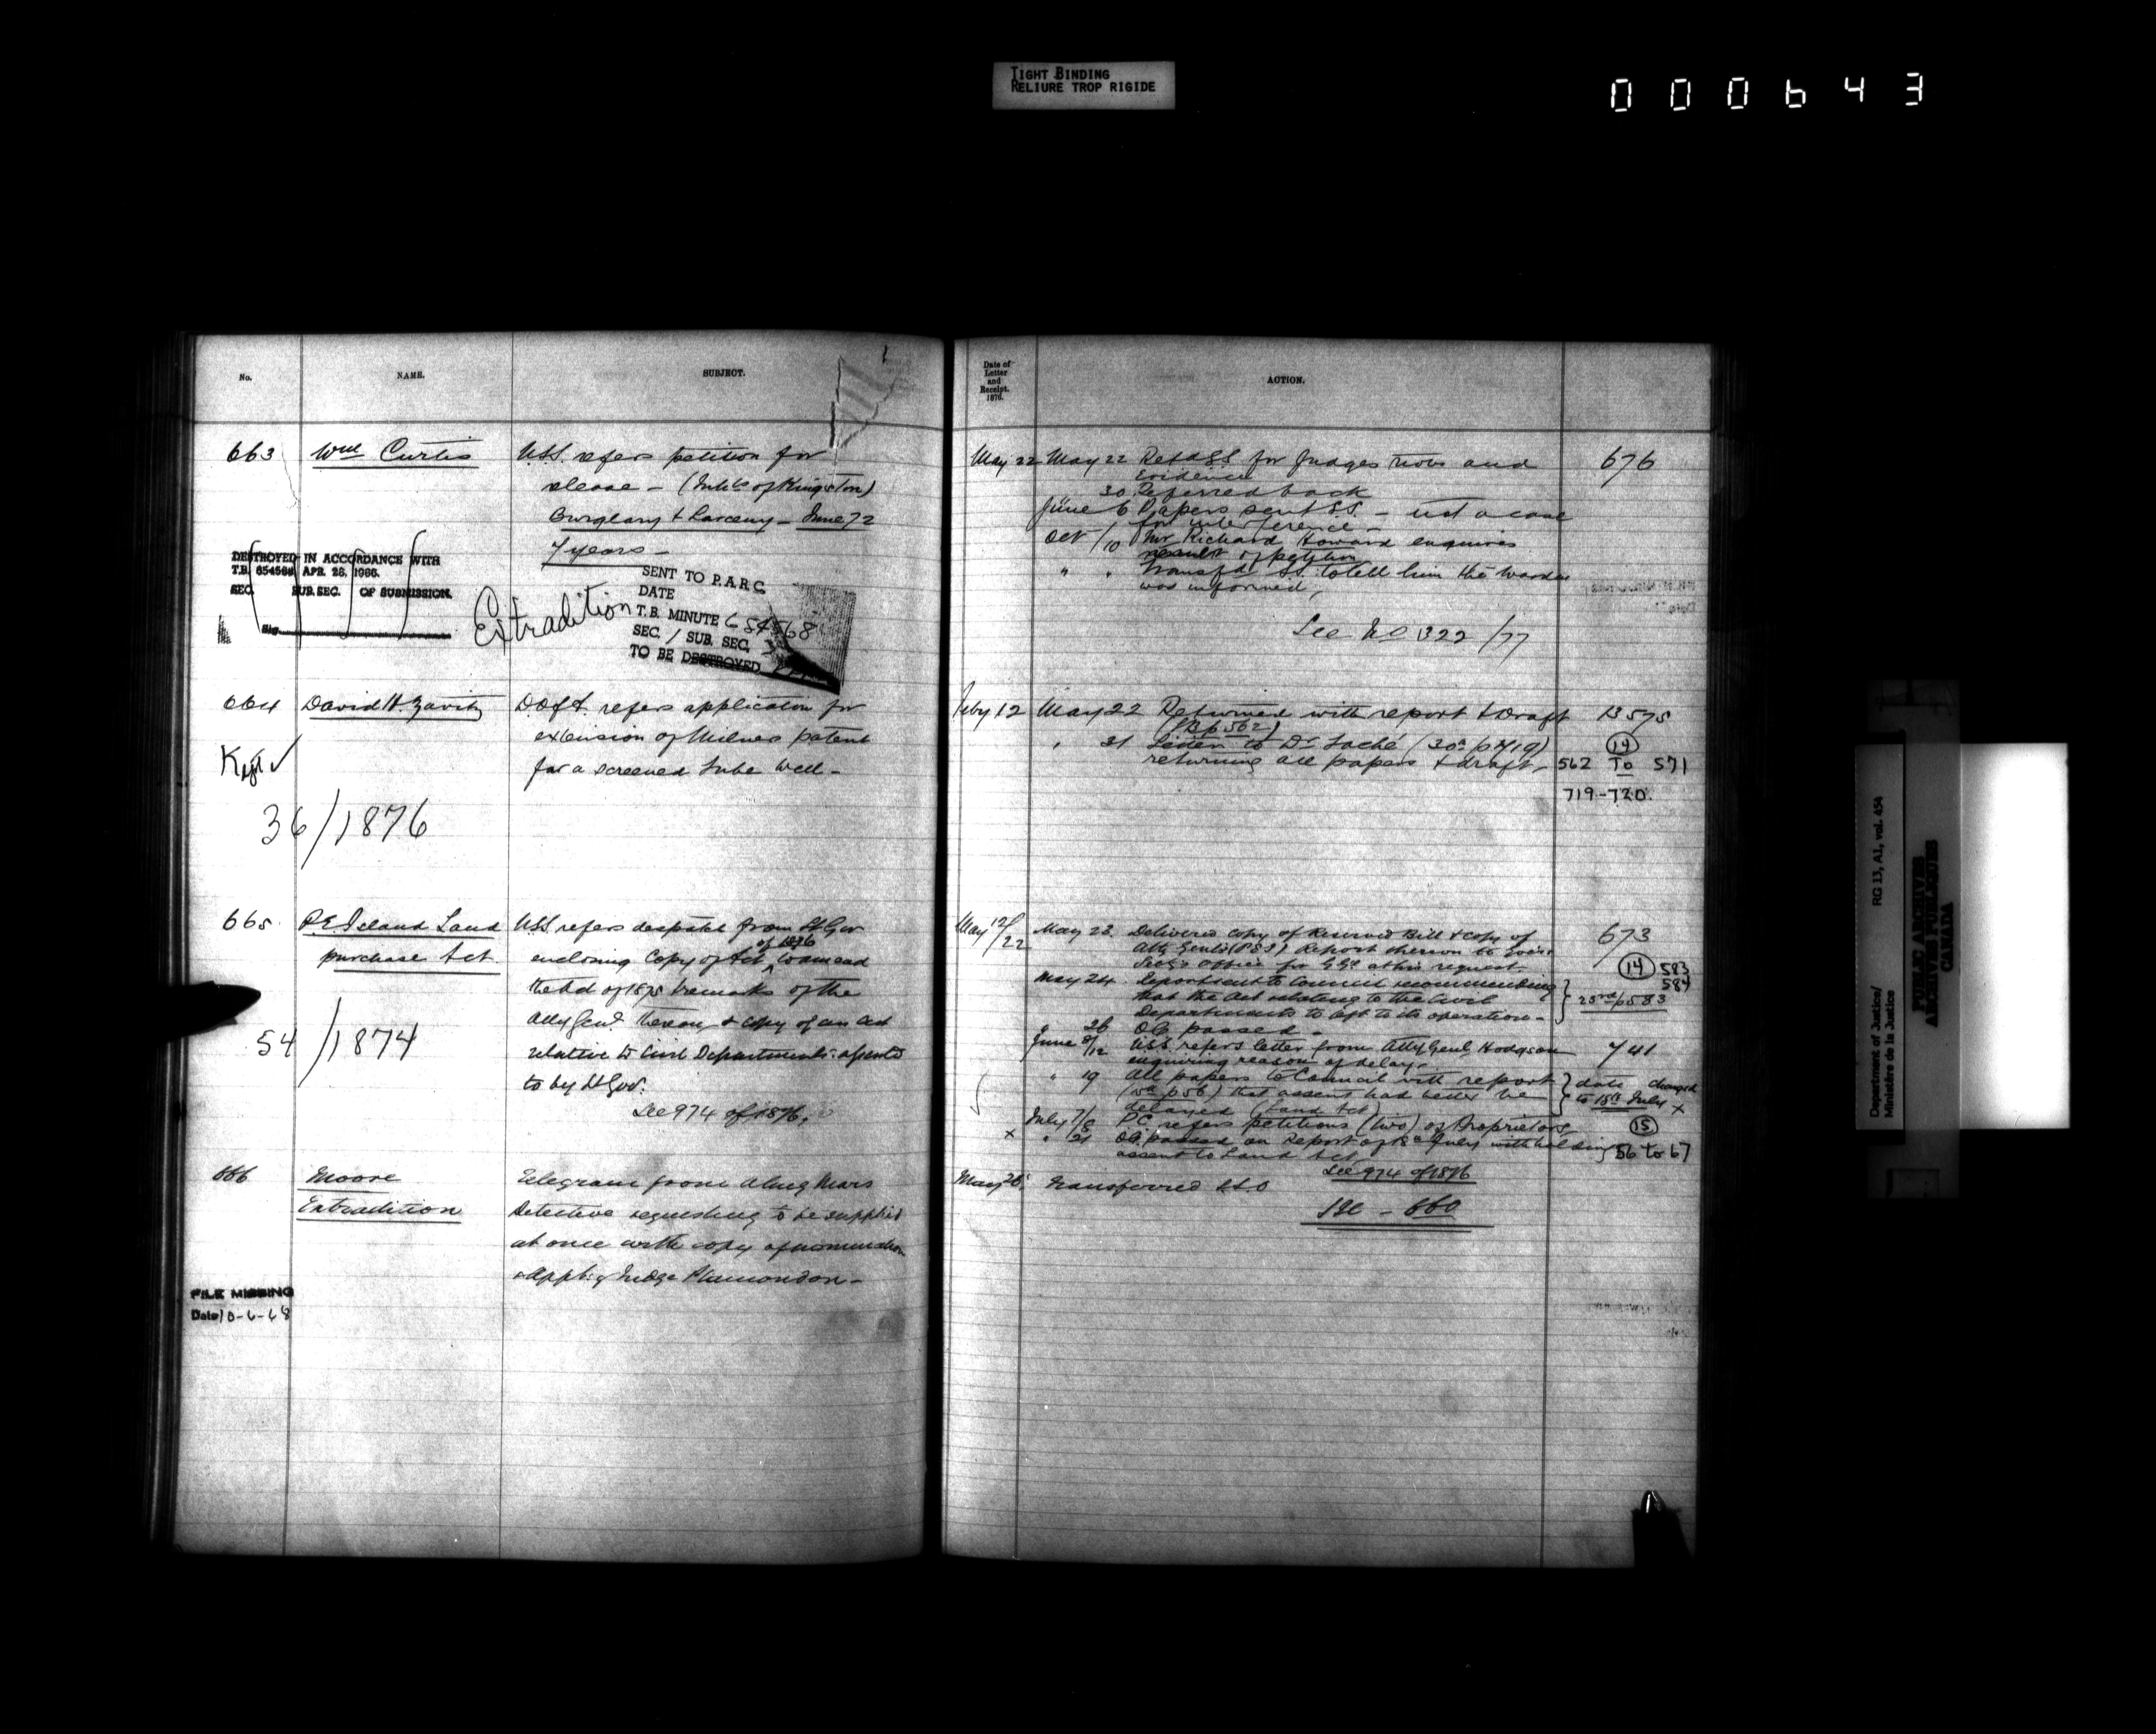 TIGHT BINDING
RELIURE TROP RIGIDE
000643
No.
NAME.
SUBJECT.
663
Wm Curtis
U.S.S. refers petition for
release — (Inhbts of Kingston)
Burglary & Larceny — June 72
7 years —
DESTROYED IN ACCORDANCE WITH
T.B. 654568 APR. 28, 1966.
SEC. SUB. SEC. OF SUBMISSION.
Sig.
Extradition
SENT TO P.A.R.C.
DATE
T.B. MINUTE 654568
SEC. / SUB. SEC.
TO BE DESTROYED
664
David H. Zavitz
D. of A. refers application for
extension of Milner patent
for a screened tube well —
36/1876
665
P.E. Island Land
purchase Act
U.S.S. refers despatch from Lt Gov
enclosing Copy of Act of 1876 to amend
the Act of 1875 & remarks of the
Atty Genl. thereon, & copy of an Act
relative to Civil Departments assented
to by Lt Gov.
See 974 of 1876.
54/1874
666
Moore
Extradition
Telegram from
Detective requesting to be supplied
at once with copy of nomination
Judge Plamondon —
FILE MISSING
Date 10-6-68
Date of
Letter
and
Receipt.
1876.
ACTION.
May 22 May 22 Ref'd S.S. for Judges notes and
Evidence
676
30 Referred back
June 6 Papers sent S.S. — not a case
for interference —
Oct /10 Mr Richard Howard enquires
result of petition
" " Transfd S.S. to tell him the Warden
was informed,
See No 1322/77
Feby 12 May 22 Returned with report & Draft
13575
(B p 562)
" 31 Letter to Dr Taché (30th p 719)
14
returning all papers & draft —
562 To 571
719-720.
May 12/22 May 23. Delivered copy of Reserved Bill & copy of
673
Atty Genl's (P.E.I.) Report thereon to Gov.
Secy's Office for G.G. at his request
14 583
584
May 24. Report sent to Council recommending
that the Act relating to the Civil
23rd p 583
Departments be left to its operation —
" 26 O.C. passed —
June 8/12 U.S.S. refers letter from Atty Genl Hodgson
741
enquiring reason of delay.
" 19 All papers to Council with report
date changed
(p 56) that assent had better be
to 15th July x
delayed (Land Act)
July 7/8 P.C. refers petitions (two) of Proprietors
15
x " 21 O.C. passed on Report of July withholding
56 to 67
assent to Land Act
See 974 of 1876
May 26 Transferred
See — 660
Department of Justice/
Ministère de la Justice
RG 13, A1, vol. 454
PUBLIC ARCHIVES
ARCHIVES PUBLIQUES
CANADA